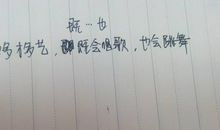 既…也
多才多艺，既会唱歌，也会跳舞